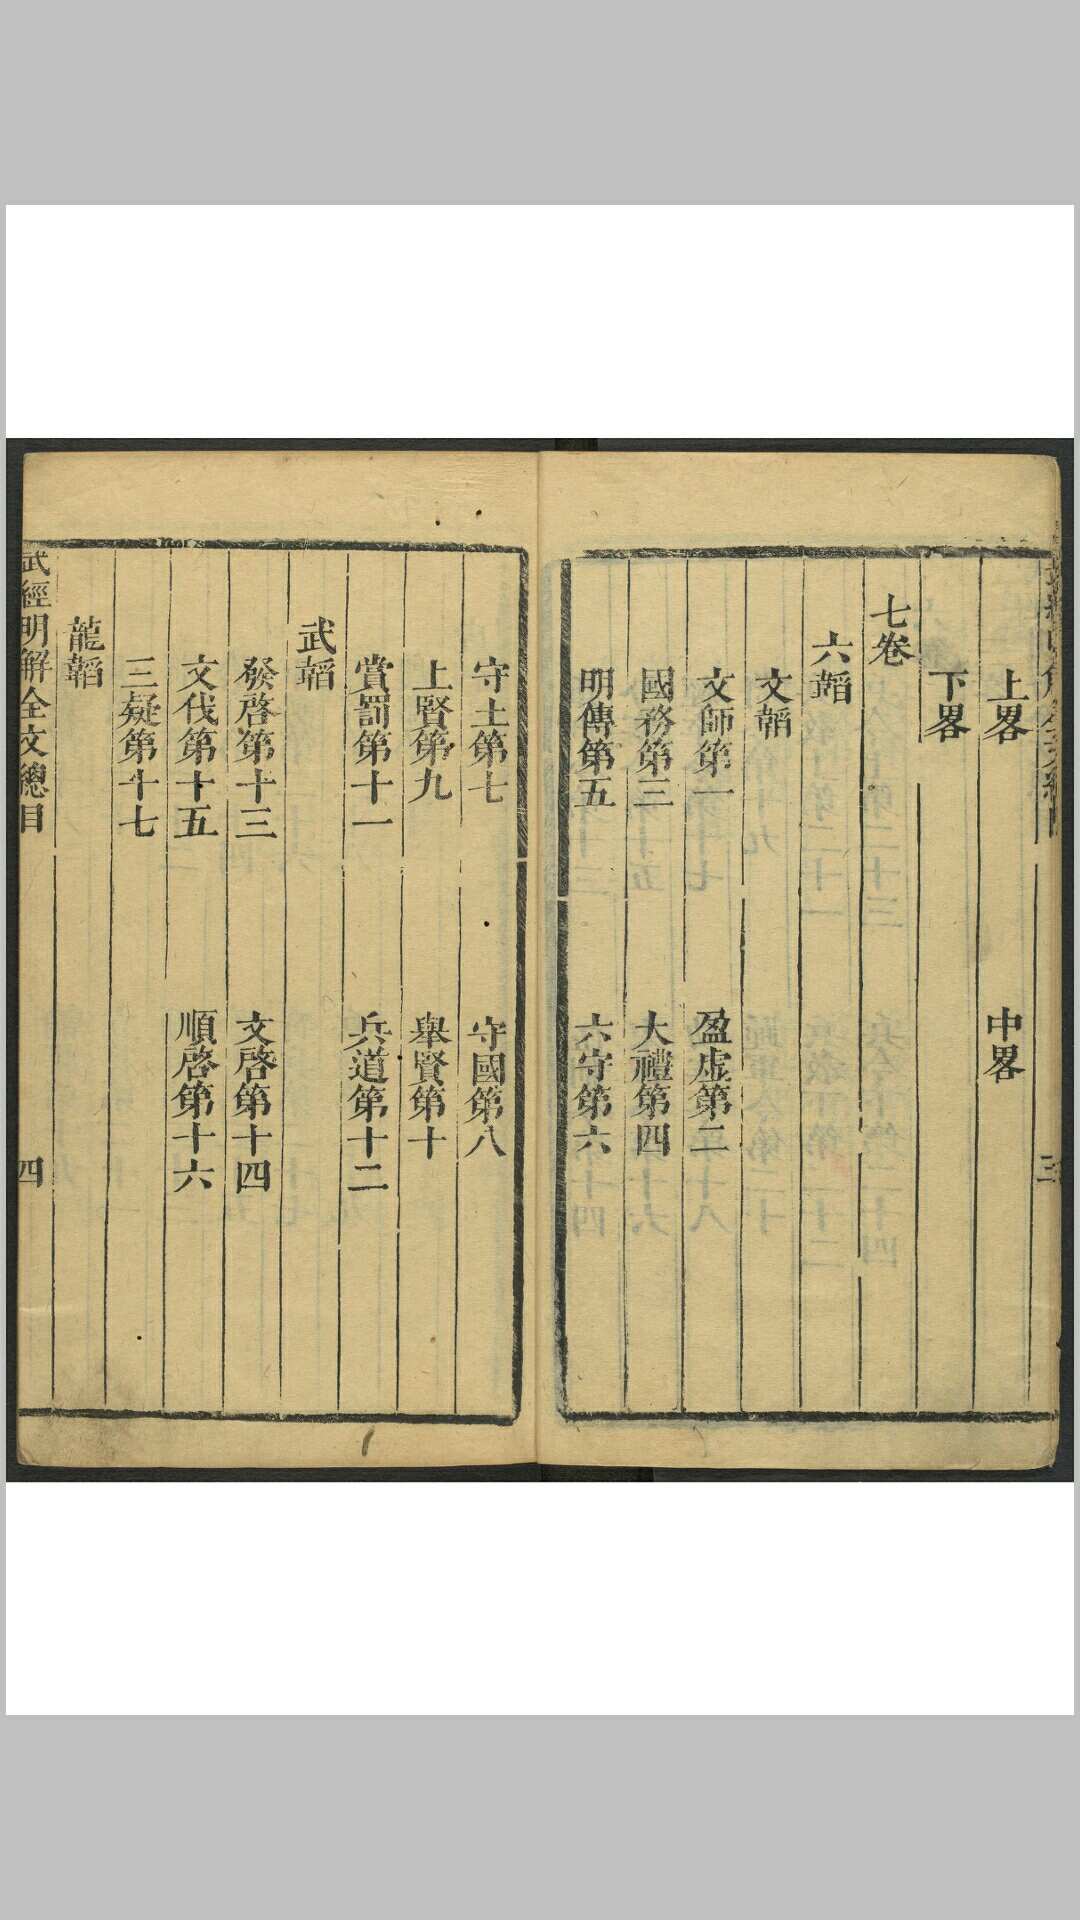 上畧
中畧
下畧
七卷
六韜
文韜
文師第一
盈虚第二
國務第三
大禮第四
明傳第五
六守第六
守土第七
守國第八
上賢第九
舉賢第十
賞罰第十一
兵道第十二
武韜
發啓第十三
文啓第十四
文伐第十五
順啓第十六
三疑第十七
龍韜
武經明解全文總目
四